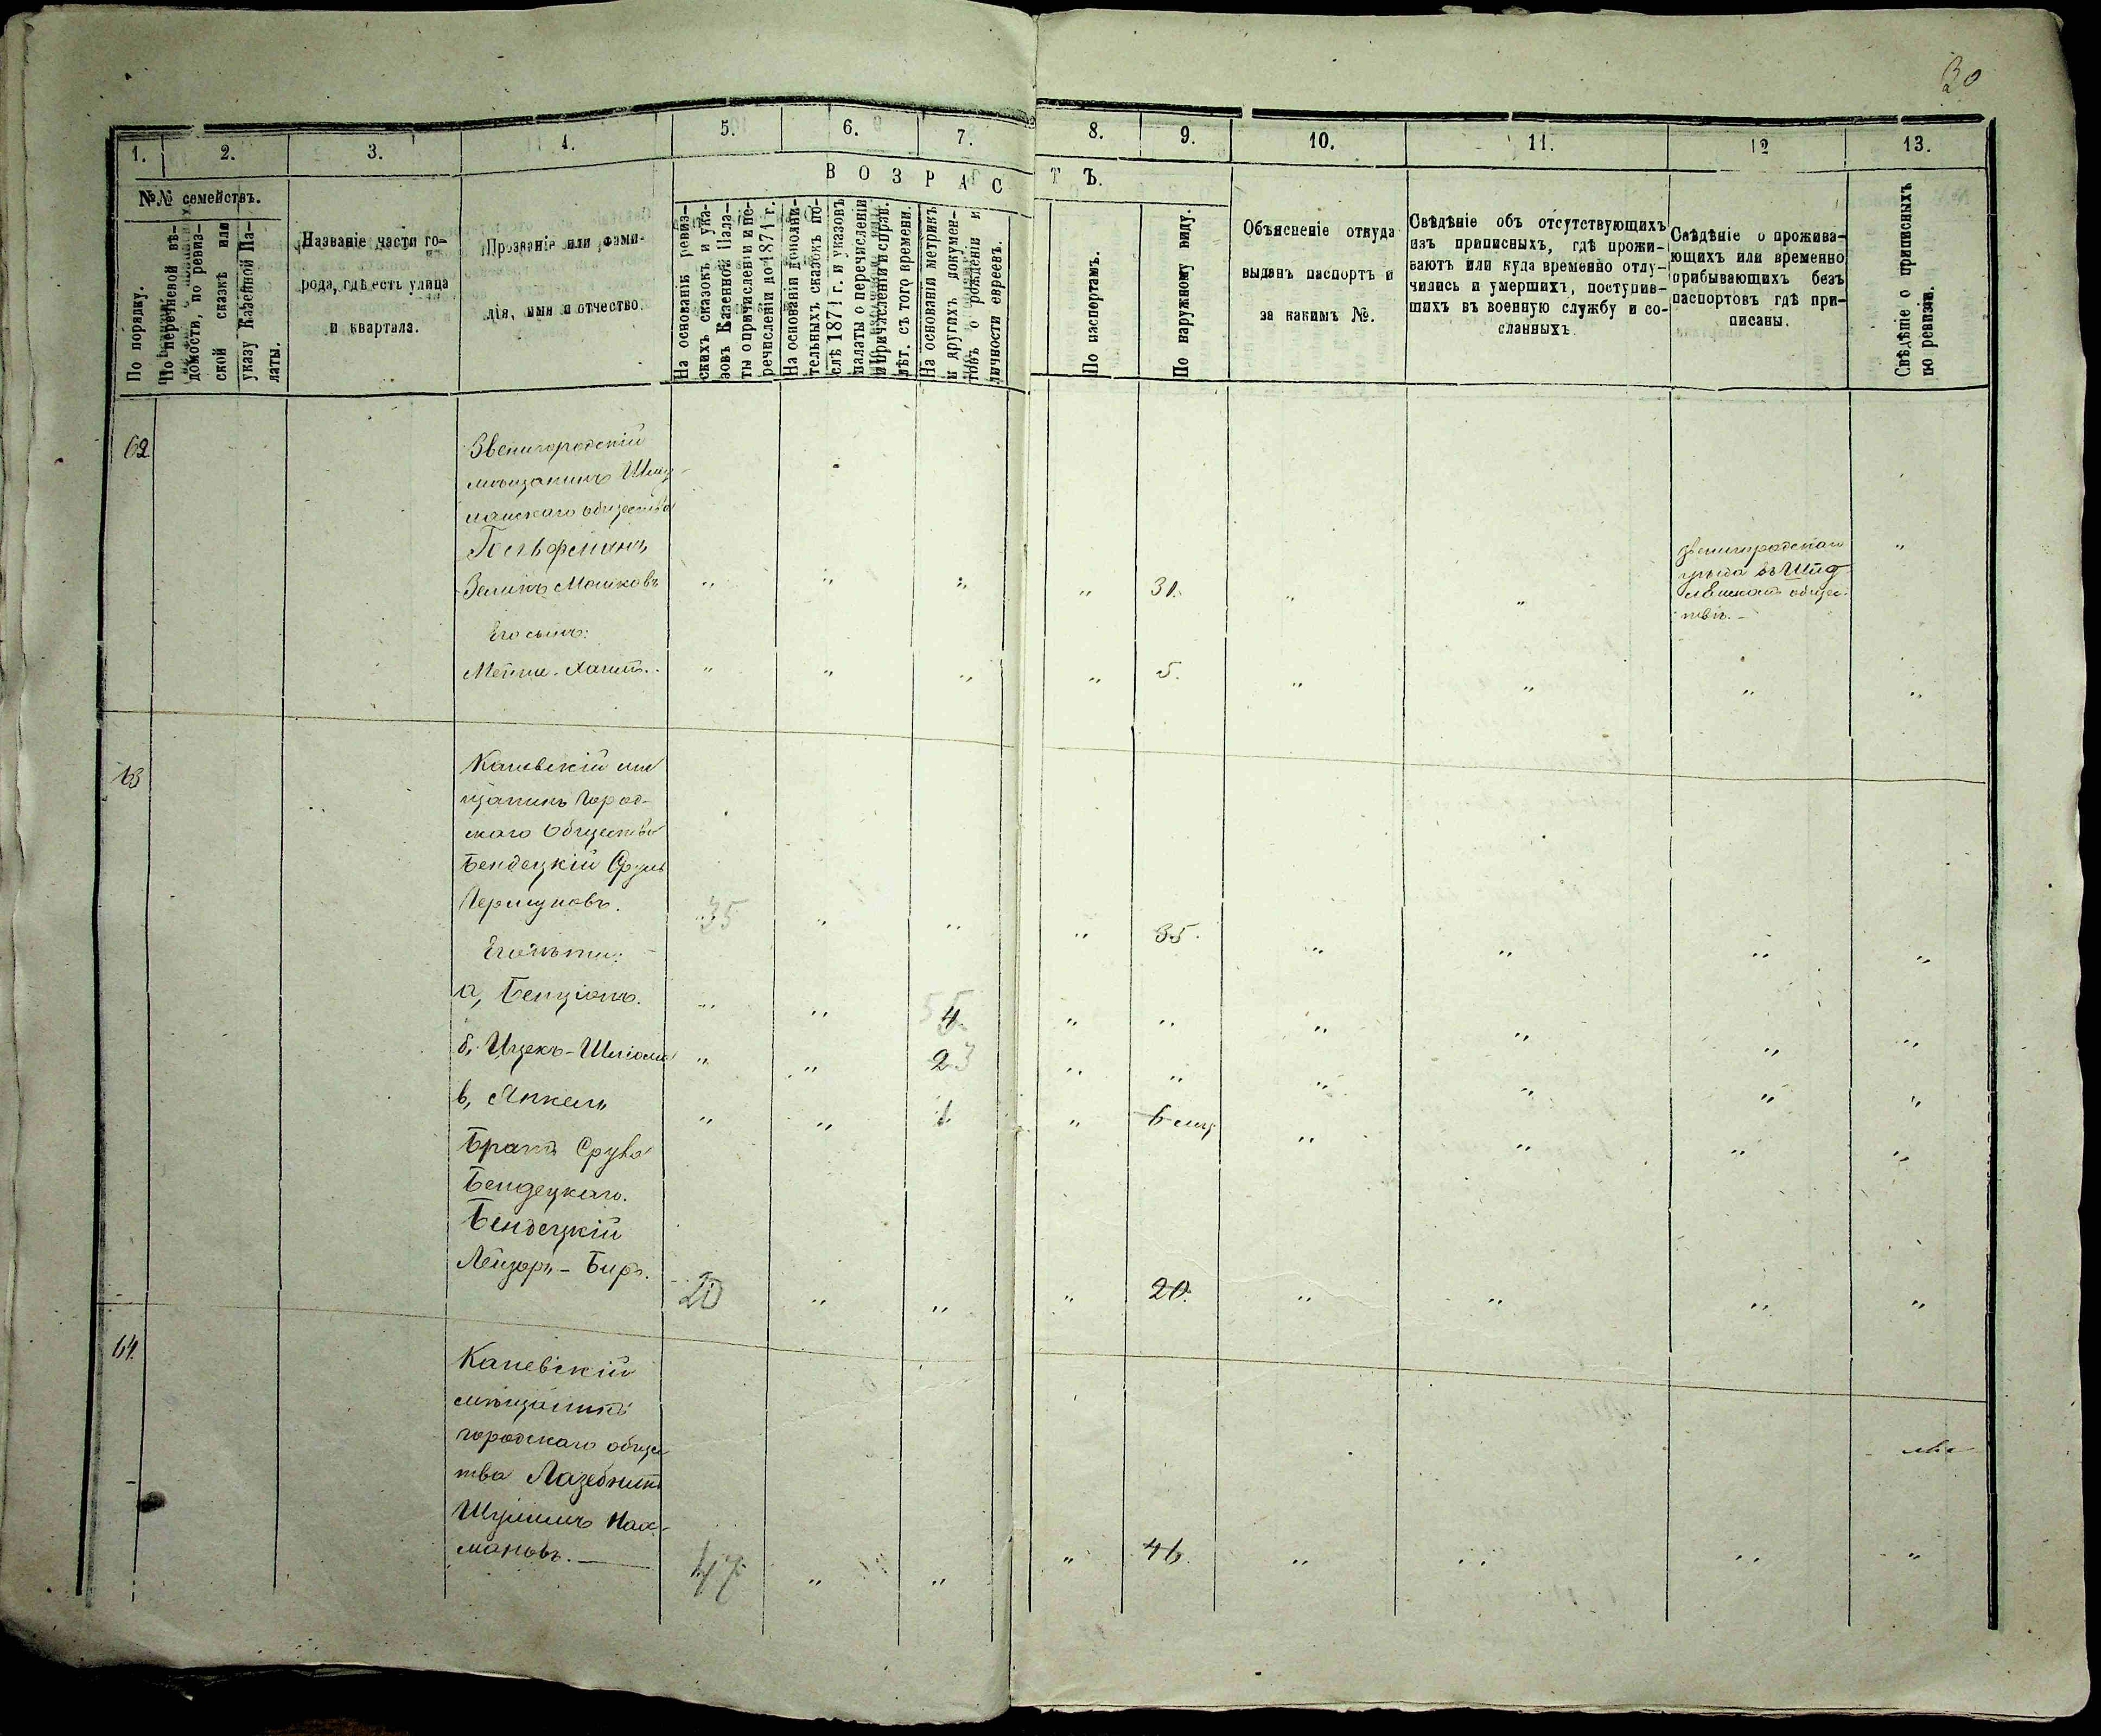 30
1.
2.
3.
4.
5.
6.
7.
8.
9.
10.
11.
12
13.
№№ семействъ.
По порядку.
По перечневой вѣ-
домости, по ревиз-
ской сказкѣ или
указу Казенной Па-
латы.
Названіе части го-
рода, гдѣ есть улица
и квартала.
Прозваніе или фами-
лія, имя и отчество.
ВОЗРАСТЪ.
На основаніи ревиз-
скихъ сказокъ и ука-
зовъ Казенной Пала-
ты о причисленіи и пе-
речисленіи до 1871 г.
На основаніи дополни-
тельныхъ сказокъ по-
слѣ 1871 г. и указовъ
палаты о перечисленіи
и причисленіи и справ.
лѣт. съ того времени.
На основаніи метрикъ
и другихъ докумен-
товъ о рожденіи и
личности евреевъ.
По паспортамъ.
По наружному виду.
Объясненіе откуда
выданъ паспортъ и
за какимъ №.
Свѣдѣніе объ отсутствующихъ
изъ приписныхъ, гдѣ прожи-
ваютъ или куда временно отлу-
чились и умершихъ, поступив-
шихъ въ военную службу и со-
сланныхъ.
Свѣдѣніе о прожива-
ющихъ или временно
прибывающихъ безъ
паспортовъ гдѣ при-
писаны.
Свѣдѣніе о приписныхъ
по ревизіи.
62
Звенигородскій
мѣщанинъ
общества
Зеликъ Мошковъ
" " " " 31. " "
Звенигородскаго
уѣзда въ
общес-
твѣ.-
"
Его сынъ:
" " " " 5. " " " "
63
Каневскій мѣ
щанинъ Город-
скаго Общества
Бендецкій Сруль
Гершуновъ.
35 " " " 35. " " " "
Его дѣти:
а, Бенціонъ.
" " 4. 5 " " " " " "
б, Ицекъ-Шліома
" " 2 3 " " " " " "
в, Янкель
" " 1 " 6 мц " " " "
Братъ Сруля
Бендецкаго.
Бендецкій
Лейзоръ-Беръ.
20 " " " 20. " " " "
64.
Каневскій
мѣщанинъ
городскаго общес
тва Лазебникъ
Шулимъ Нах-
мановъ.
47 " " " 46. " " " "